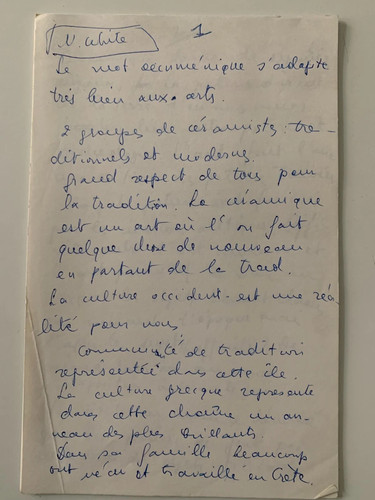 N. White
1
Le mot œcuménique s'adapte
très bien aux arts.
2 groupes de céramistes: tra-
ditionnels et modernes.
Grand respect de tous pour
la tradition. La céramique
est un art où l'on fait
quelque chose de nouveau
en partant de la trad.
La culture occident. est une réa-
lité pour nous.
Communauté de tradition
représentée dans cette île.
La culture grecque représente
dans cette chaîne un an-
neau des plus brillants.
Dans sa famille beaucoup
ont vécu et travaillé en Crète.